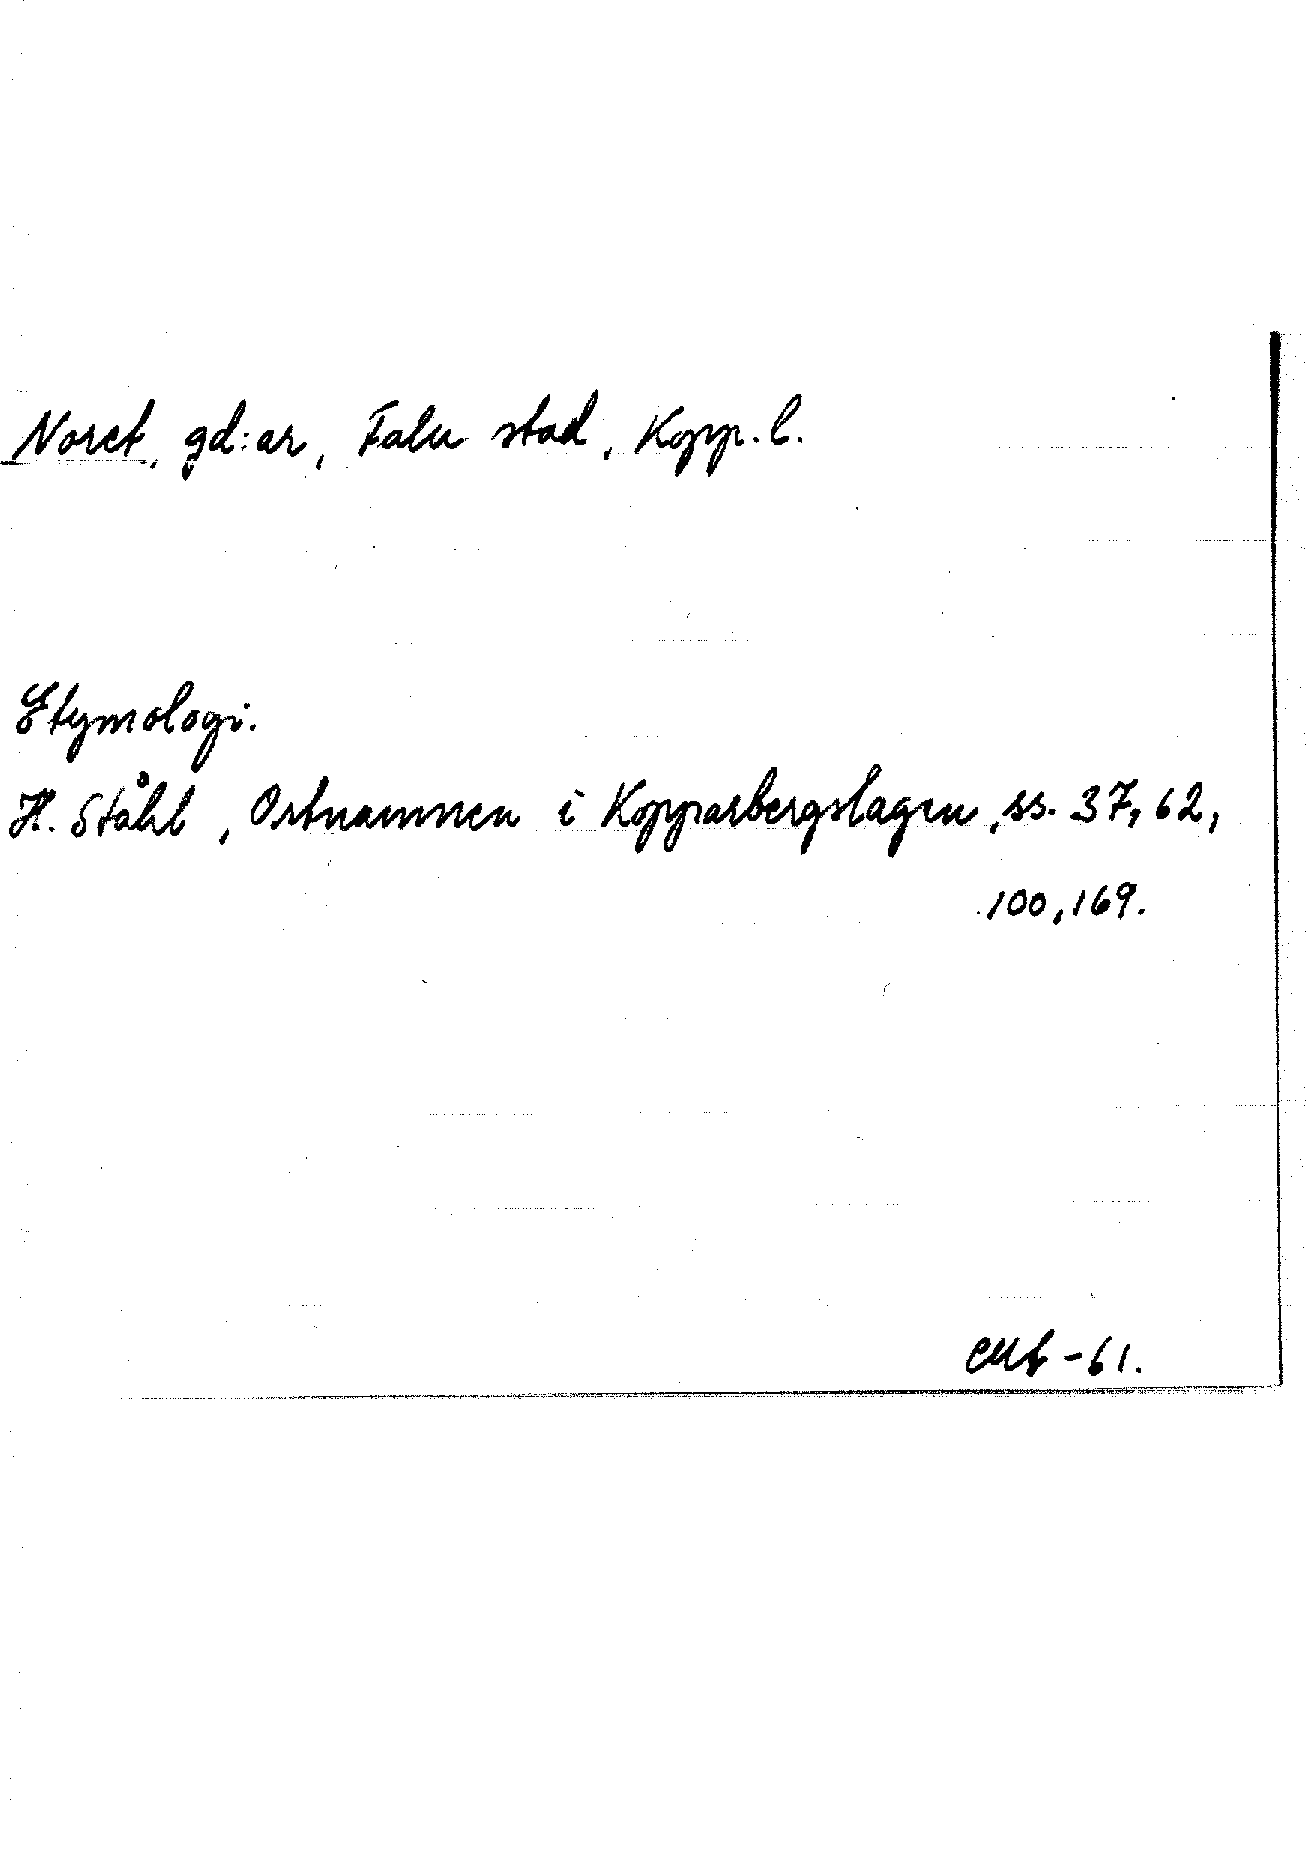 Noret, gd:ar, Falu stad, Kopp. l.
Etymologi.
H. Ståhl, Ortnamnen i Kopparbergslagen, ss. 37, 62,
100, 169.
-61.